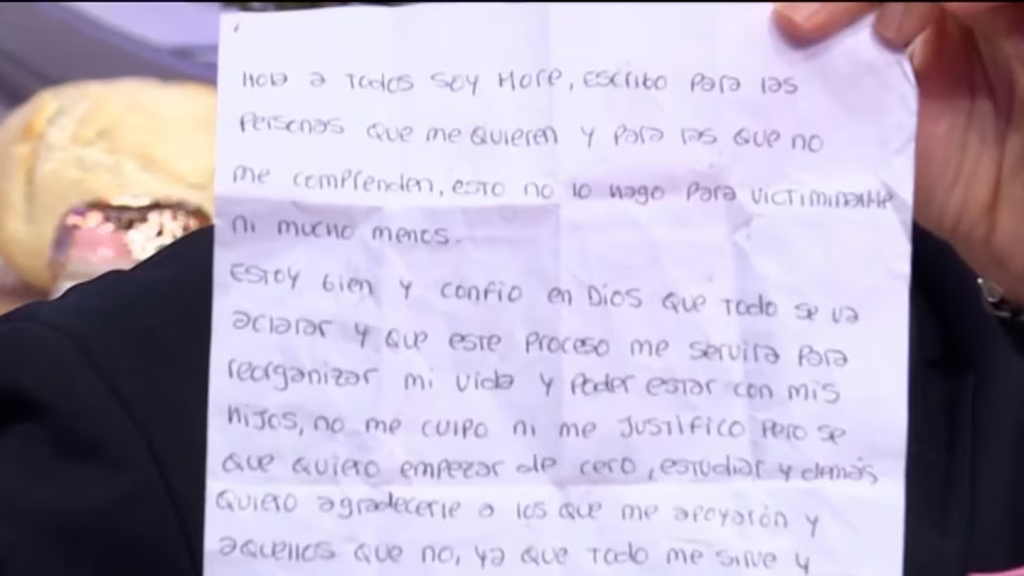 Hola a Todos soy More, escribo para las
personas que me quieren y para las que no
me comprenden, esto no lo hago para victimizarme
ni mucho menos.
Estoy bien y confio en Dios que todo se va
aclarar y que este proceso me servira para
reorganizar mi vida y poder estar con mis
hijos, no me culpo ni me justifico pero se
que quiero empezar de cero, estudiar y demás
quiero agradecerle a los que me apoyarón y
aquellos que no, ya que todo me sirve y